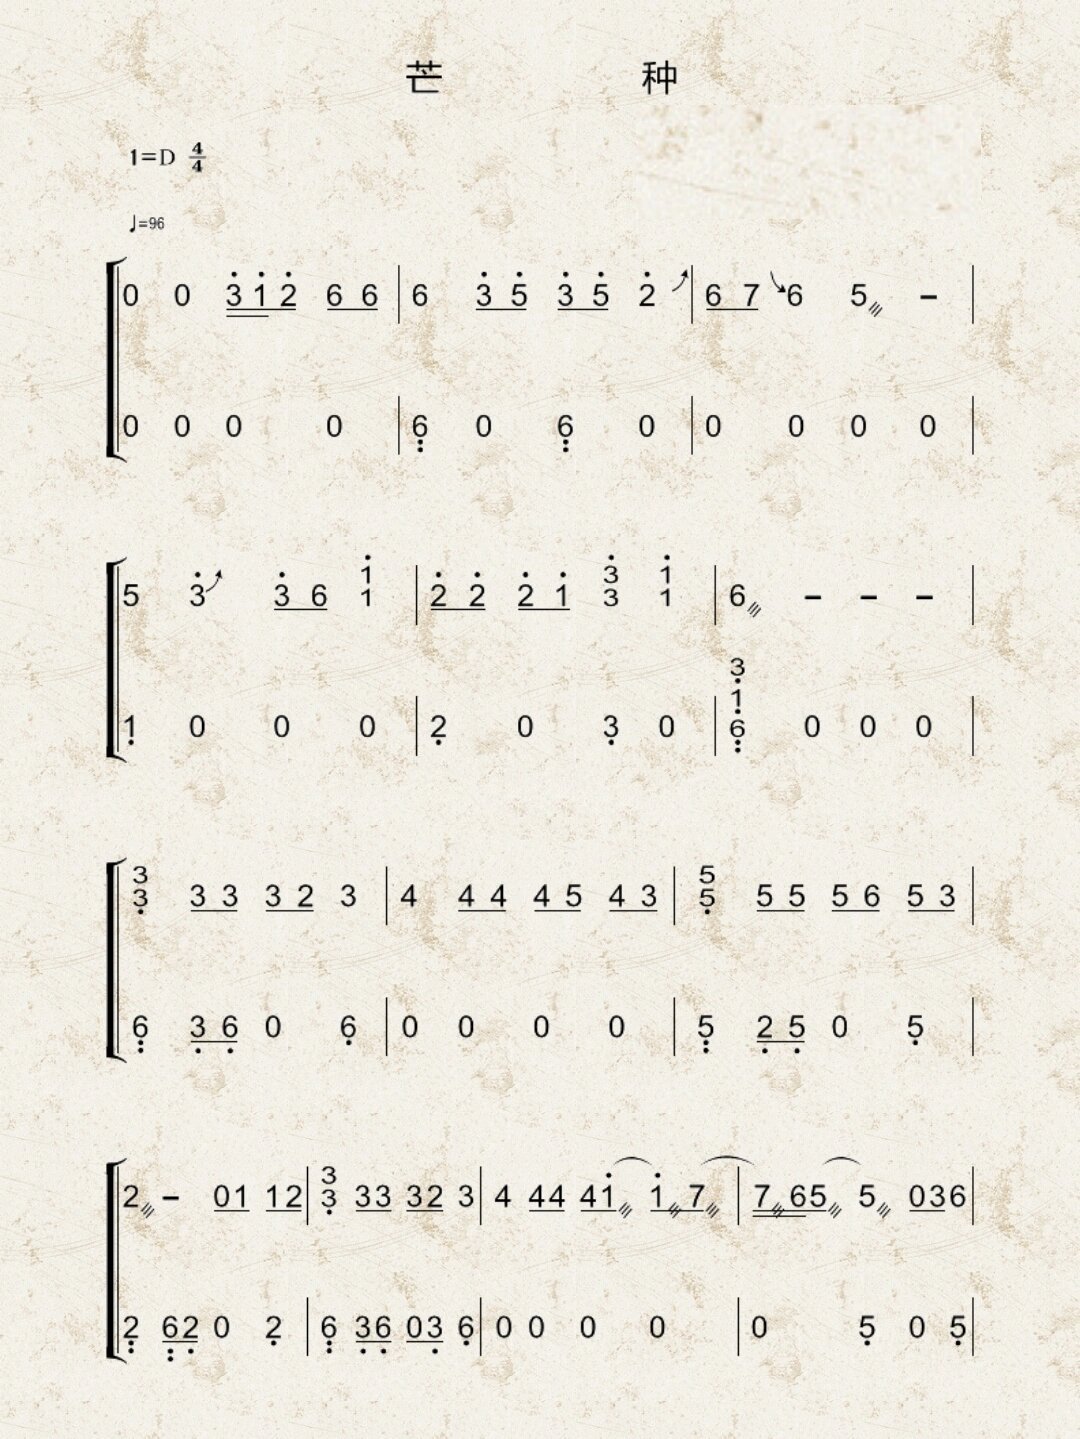 芒 种
1=D 4/4
♩=96
0 0 3̇ 1̇ 2̇ 6 6 | 6 3̇ 5̇ 3̇ 5̇ 2̇ | 6 7 6 5 - |
0 0 0 0 | 6̣ 0 6̣ 0 | 0 0 0 0 |
5 3̇ 3̇ 6 1̇ 1 | 2̇ 2̇ 2̇ 1̇ 3̇ 3 1̇ 1 | 6 - - - |
1̣ 0 0 0 | 2̣ 0 3̣ 0 | 3̣ 1̣ 6̣ 0 0 0 |
3 3̣ 3 3 3 2 3 | 4 4 4 4 5 4 3 | 5 5̣ 5 5 5 6 5 3 |
6̣ 3̣ 6̣ 0 6̣ | 0 0 0 0 | 5̣ 2̣ 5̣ 0 5̣ |
2 - 0 1 1 2 | 3 3̣ 3 3 3 2 3 | 4 4 4 4 1̇ 1̇ 7 | 7 6 5 5 0 3 6 |
2̣ 6̣ 2̣ 0 2̣ | 6̣ 3̣ 6̣ 0 3̣ 6̣ | 0 0 0 0 | 0 5̣ 0 5̣ |